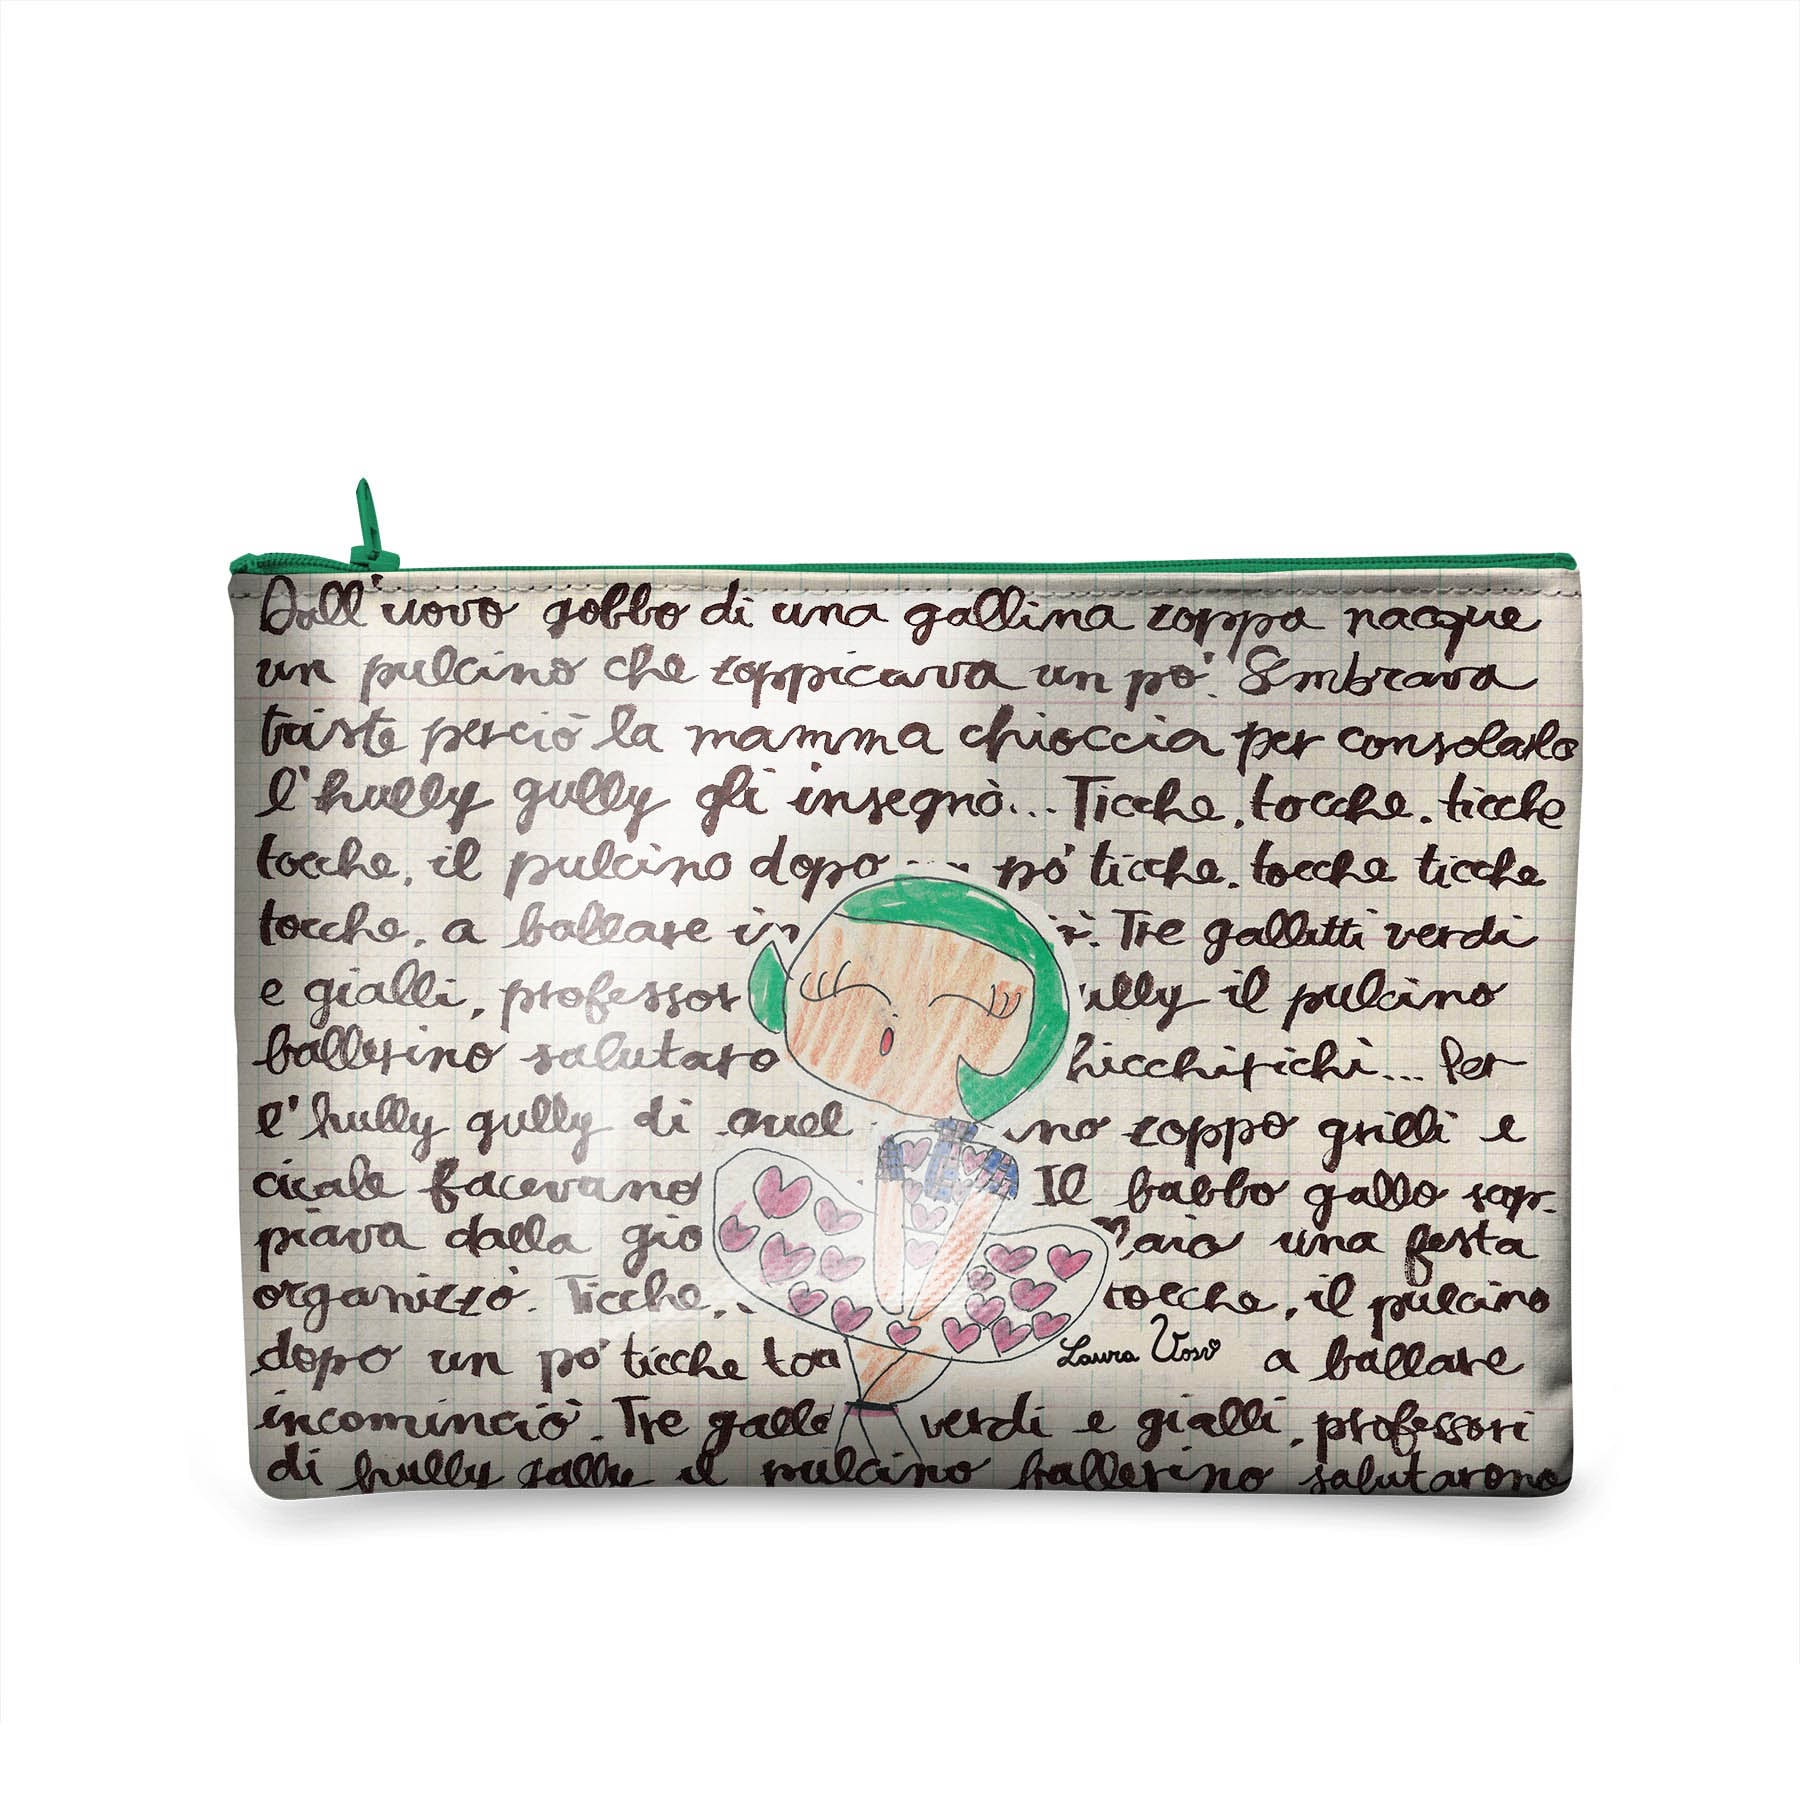 Dall'uovo gobbo di una gallina zoppa nacque
un pulcino che zoppicava un po'. Sembrava
triste perciò la mamma chioccia per consolarlo
l'hully gully gli insegnò... Ticche, tocche, ticche
tocche, il pulcino dopo po' ticche, tocche ticche
tocche, a ballare in ì. Tre galletti verdi
e gialli, professor ully il pulcino
ballerino salutaro hicchirichì... Per
l'hully gully di quel ino zoppo grilli e
cicale facevano Il babbo gallo sap-
piava dalla gio aio una festa
organizzò. Ticche, tocche, il pulcino
dopo un po' ticche toc a ballare
Laura Vosi
incominciò. Tre galle verdi e gialli, professori
di hully gully il pulcino ballerino salutarono